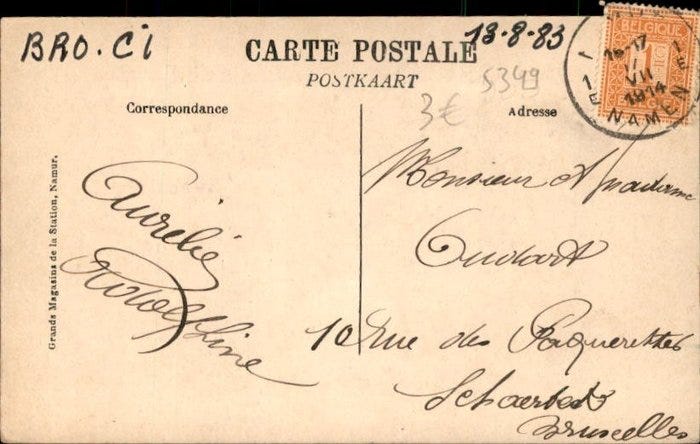 BRO. Ci
CARTE POSTALE
13-8-83
POSTKAART
5349
3€
Correspondance
Adresse
BELGIQUE
1
16-17
1
VII
1914
NAMEN
Grands Magasins de la Station, Namur.
Aurélie
Rodolphine
Monsieur et Madame
Oudart
10 Rue des Paquerettes
Schaerbeek
Bruxelles